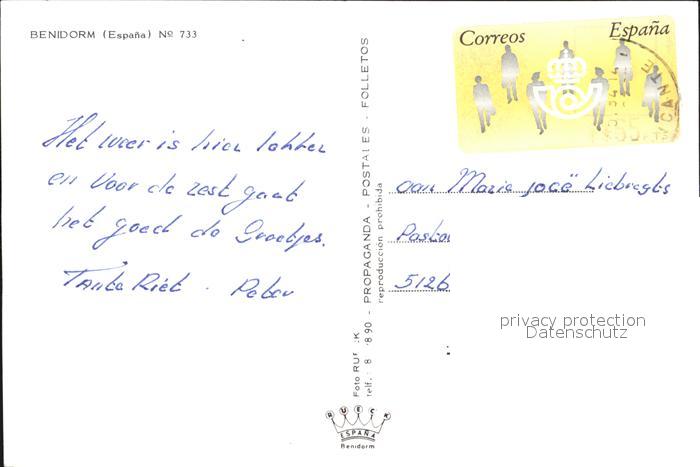 BENIDORM (España) Nº 733
Correos España
Het weer is hier lekker
en voor de rest gaat
het goed de Groetjes.
Tante Riet . Peter
FOLLETOS - POSTALES - PROPAGANDA
reproducción prohibida
Foto RUECK
telf.: 8 890
aan Marie José Liebregts
Pastoo
5126
privacy protection
Datenschutz
RUECK
ESPAÑA
Benidorm